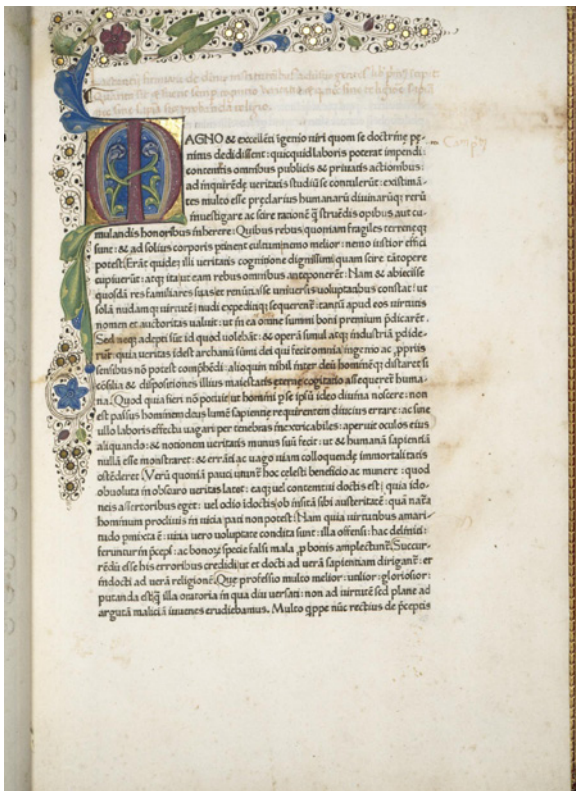 MAGNO & excellēti īgenio uiri quom se doctrinę pę-
nitus dedidissent: quicquid laboris poterat impendi:
contemtis omnibus publicis & priuatis actionibus:
ad inquirēdę ueritatis studiū se contulerūt: existimā-
tes multo esse pręclarius humanarū diuinarūq; rerū
inuestigare ac scire rationē q̄ struēdis opibus aut cu-
mulandis honoribus inherere: Quibus rebus quoniam fragiles terreneq;
sunt: & ad solius corporis ptinent cultum: nemo melior: nemo iustior effici
potest. Erāt quidē illi ueritatis cognitione dignissimi quam scire tātopere
cupiuerūt: atq; ita ut eam rebus omnibus anteponerēt: Nam & abiecisse
quosdā res familiares suas et renūtiasse uniuersis uoluptatibus constat: ut
solā nudamq; uirtutē nudi expeditiq; sequerent̄: tantū apud eos uirtutis
nomen et auctoritas ualuit: ut in ea omne summi boni premium p̄dicarēt.
Sed neq; adepti sūt id quod uolebāt: & operā simul atq; industriā pdide-
rūt: quia ueritas idest archanū sūmi dei qui fecit omnia ingenio ac ppriis
sensibus nō potest comphēdi: alioquin nihil inter deū hominēq; distaret si
cōsilia & dispositiones illius maiestatis eterne cogitatio assequeret̄ huma-
na. Quod quia fieri nō potuit ut homini p se ipsū ideo diuina noscere: non
est passus hominem deus lumē sapientie requirentem diucius errare: ac sine
ullo laboris effectu uagari per tenebras inextricabiles: aperuit oculos eius
aliquando: & notionem ueritatis munus suū fecit: ut & humanā sapientiā
nullā esse monstraret: & errāti ac uago uiam colloquendę immortalitatis
ostēderet. Verū quoniā pauci utunt̄ hoc celesti beneficio ac munere: quod
obuoluta in obscuro ueritas latet: eaq; uel contemtui doctis est: quia ido-
neis assertoribus eget: uel odio idoctis ob insitā sibi austeritatē: quā natā
hominum procliuis in uicia pati non potest: Nam quia uirtutibus amari-
tudo pmixta ē: uitia uero uoluptate condita sunt: illa offensi: hac deliniti:
feruntur in p̄ceps: ac bonoꝝ specie falsi mala p bonis amplectunt̄. Succur-
rēdū esse his erroribus credidi ut et docti ad uerā sapientiam dirigant̄: et
indocti ad uerā religionē. Que professio multo melior: utilior: gloriosior:
putanda est q̄ illa oratoria in qua diu uersati: non ad uirtutē sed plane ad
argutā maliciā iuuenes erudiebamus. Multo q̄ppe nūc rectius de p̄ceptis